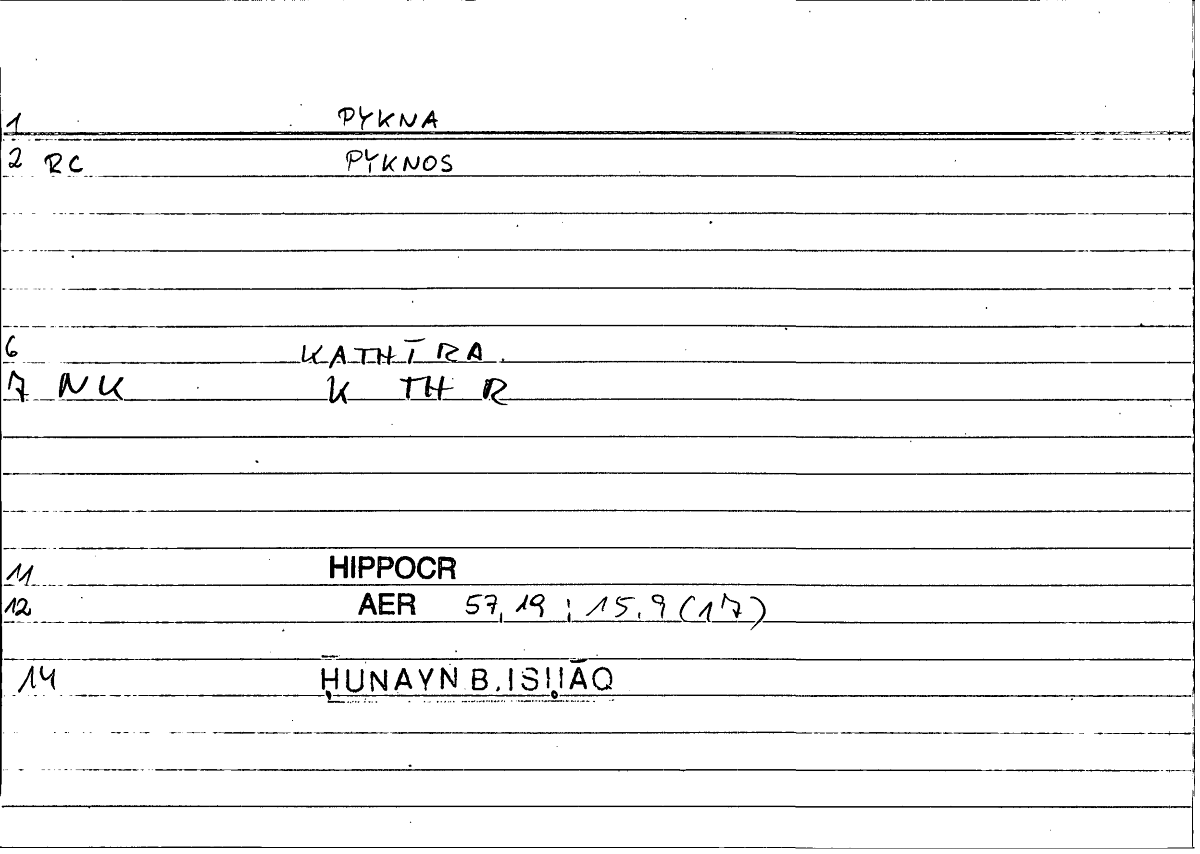 1 PYKNA
2 RC PYKNOS
6 KATHĪRA.
7 NK K TH R
11 HIPPOCR
12 AER 57,19 ; 15.9 (17)
14 ḤUNAYN B. ISḤĀQ